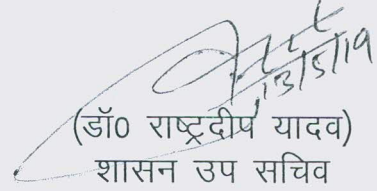 13/5/19
(डॉ0 राष्ट्रदीप यादव)
शासन उप सचिव